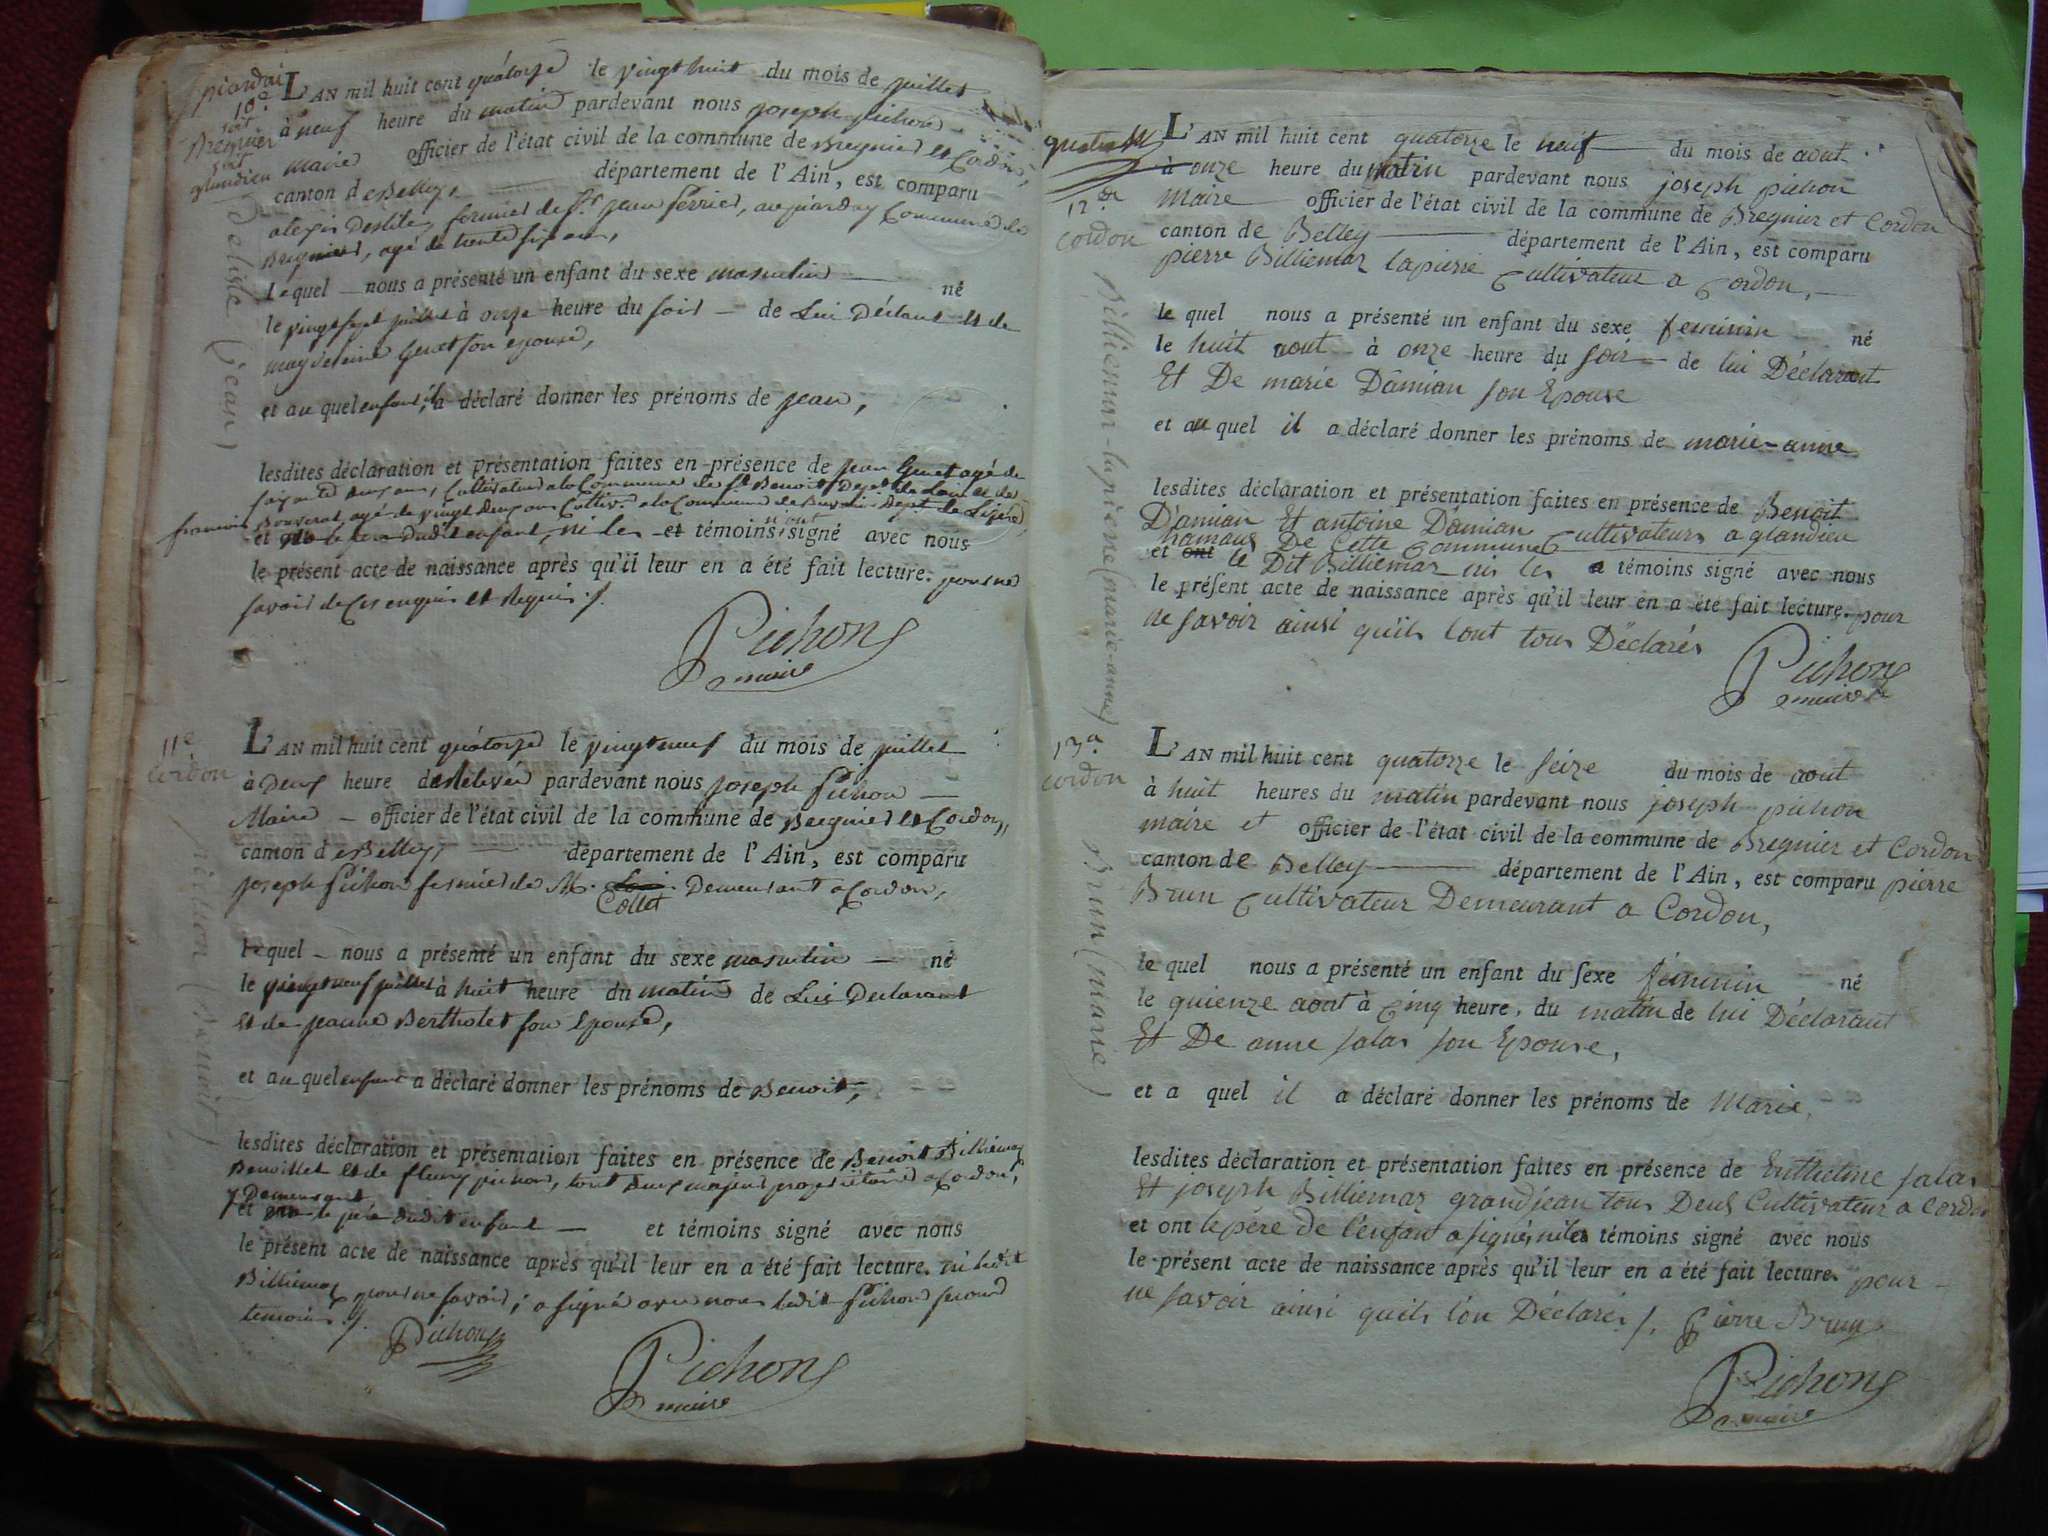 piardai
10e
soit
Bregnier
soit
glandieu
Deliste (jean)
L'AN mil huit cent quatorze le vingt huit du mois de juillet
à neuf heure du matin pardevant nous joseph pichon
Maire officier de l'état civil de la commune de Bregnier et Cordon,
canton de Belley, département de l'Ain, est comparu
alexis Deslile, fermier de Sr. jean ferrier, au piarday Commune de
Bregnier, agé de trente six ans,
lequel nous a présenté un enfant du sexe masculin né
le vingt sept juillet à onze heure du soir de Lui Déclarant et de
magdeleine Genet son epouse,
et au quel enfant, il a déclaré donner les prénoms de jean,
lesdites déclaration et présentation faites en présence de jean Genet agé de
soixante deux ans, Cultivateur a la Commune de St Benoit, Dept de Lain et de
francois Bouverat, agé de vingt deux ans Cultivr. a la Commune de Dept. de Lizere,
et le pere dudit enfant, ni les et témoins n'ont signé avec nous
le présent acte de naissance après qu'il leur en a été fait lecture. pour ne
savoir de Ces enquis et Requis ./.
Pichon
maire
11e
cordon
pichon (Benoit)
L'AN mil huit cent quatorze le vingt neuf du mois de juillet
à Deux heure de Relevée pardevant nous joseph Pichon
Maire officier de l'état civil de la commune de Bregnier et Cordon,
canton de Belley, département de l'Ain, est comparu
joseph Pichon fermier de M. Collet Demeurant a Cordon,
lequel nous a présenté un enfant du sexe masculin né
le vingt neuf juillet à huit heure du matin de Lui Declarant
et de jeanne Bertholet son Epouse,
et au quel enfant a déclaré donner les prénoms de Benoit,
lesdites déclaration et présentation faites en présence de Benoit Billiémaz
Benoillet et de fleury pichon, tout deux majeurs propriétaires a Cordon,
y Demeurant
et le père dudit enfant et témoins signé avec nous
le présent acte de naissance après qu'il leur en a été fait lecture. ni ledit
Billiemaz pour ne savoir; a signé avec nous ledit Pichon second
temoin ./.
Pichon
Pichon
maire
quatre
12e
cordon
Billiemaz-lapierre (marie-anne)
L'AN mil huit cent quatorze le neuf du mois de aout
à onze heure du matin pardevant nous joseph pichon
Maire officier de l'état civil de la commune de Bregnier et Cordon
canton de Belley département de l'Ain, est comparu
pierre Billiemaz lapierre Cultivateur a Cordon,
le quel nous a présenté un enfant du sexe feminin né
le huit aout à onze heure du soir de lui Déclarant
Et De marie Damian son Epouse
et au quel il a déclaré donner les prénoms de marie-anne
lesdites déclaration et présentation faites en présence de Benoit
Damian Et antoine Damian Cultivateurs a glandieu
hamaux De Cette Commune
et ont le Dit Billiemaz ni les témoins signé avec nous
le présent acte de naissance après qu'il leur en a été fait lecture. pour
ne savoir ainsi quils lont tous Déclarés
Pichon
maire
13e
cordon
Brun (marie)
L'AN mil huit cent quatorze le seize du mois de aout
à huit heures du matin pardevant nous joseph pichon
maire et officier de l'état civil de la commune de Bregnier et Cordon
canton de Belley département de l'Ain, est comparu pierre
Brun Cultivateur Demeurant a Cordon,
le quel nous a présenté un enfant du sexe féminin né
le quienze aout à cinq heure, du matin de lui Déclarant
Et De anne salas son Epouse,
et a quel il a déclaré donner les prénoms de Marie,
lesdites déclaration et présentation faites en présence de Enthelme salas
Et joseph Billiemaz grandjean tous Deux Cultivateur a Cordon
et ont le père de l'enfant a signé ni les témoins signé avec nous
le présent acte de naissance après qu'il leur en a été fait lecture. pour
ne savoir ainsi quils lon Déclarés /. Pierre Brun
Pichon
maire